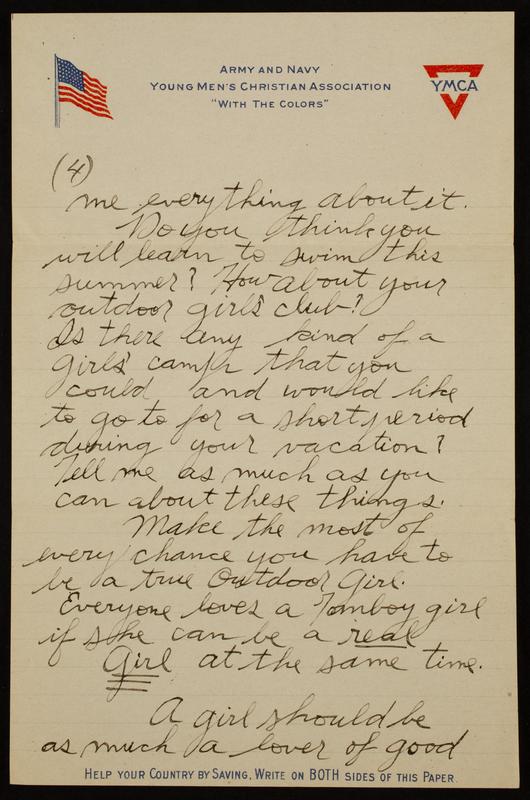 ARMY AND NAVY
YOUNG MEN'S CHRISTIAN ASSOCIATION
"WITH THE COLORS"
YMCA
(4)
me everything about it.
Do you think you
will learn to swim this
summer? How about your
outdoor girls' club?
Is there any kind of a
girls' camp that you
could and would like
to go to for a short period
during your vacation?
Tell me as much as you
can about these things.
Make the most of
every chance you have to
be a true Outdoor Girl.
Everyone loves a Tomboy girl
if she can be a real
Girl at the same time.
A girl should be
as much a lover of good
HELP YOUR COUNTRY BY SAVING, WRITE ON BOTH SIDES OF THIS PAPER.